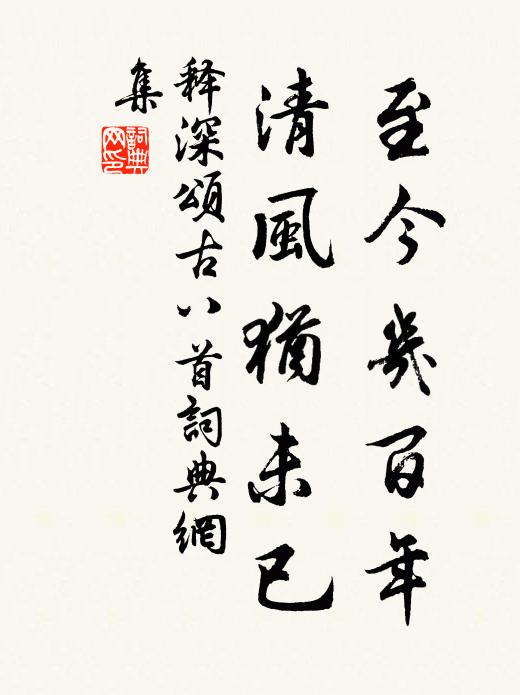 至今幾百年
清風猶未已
释深頌古八首詞典網
集
詞典网印